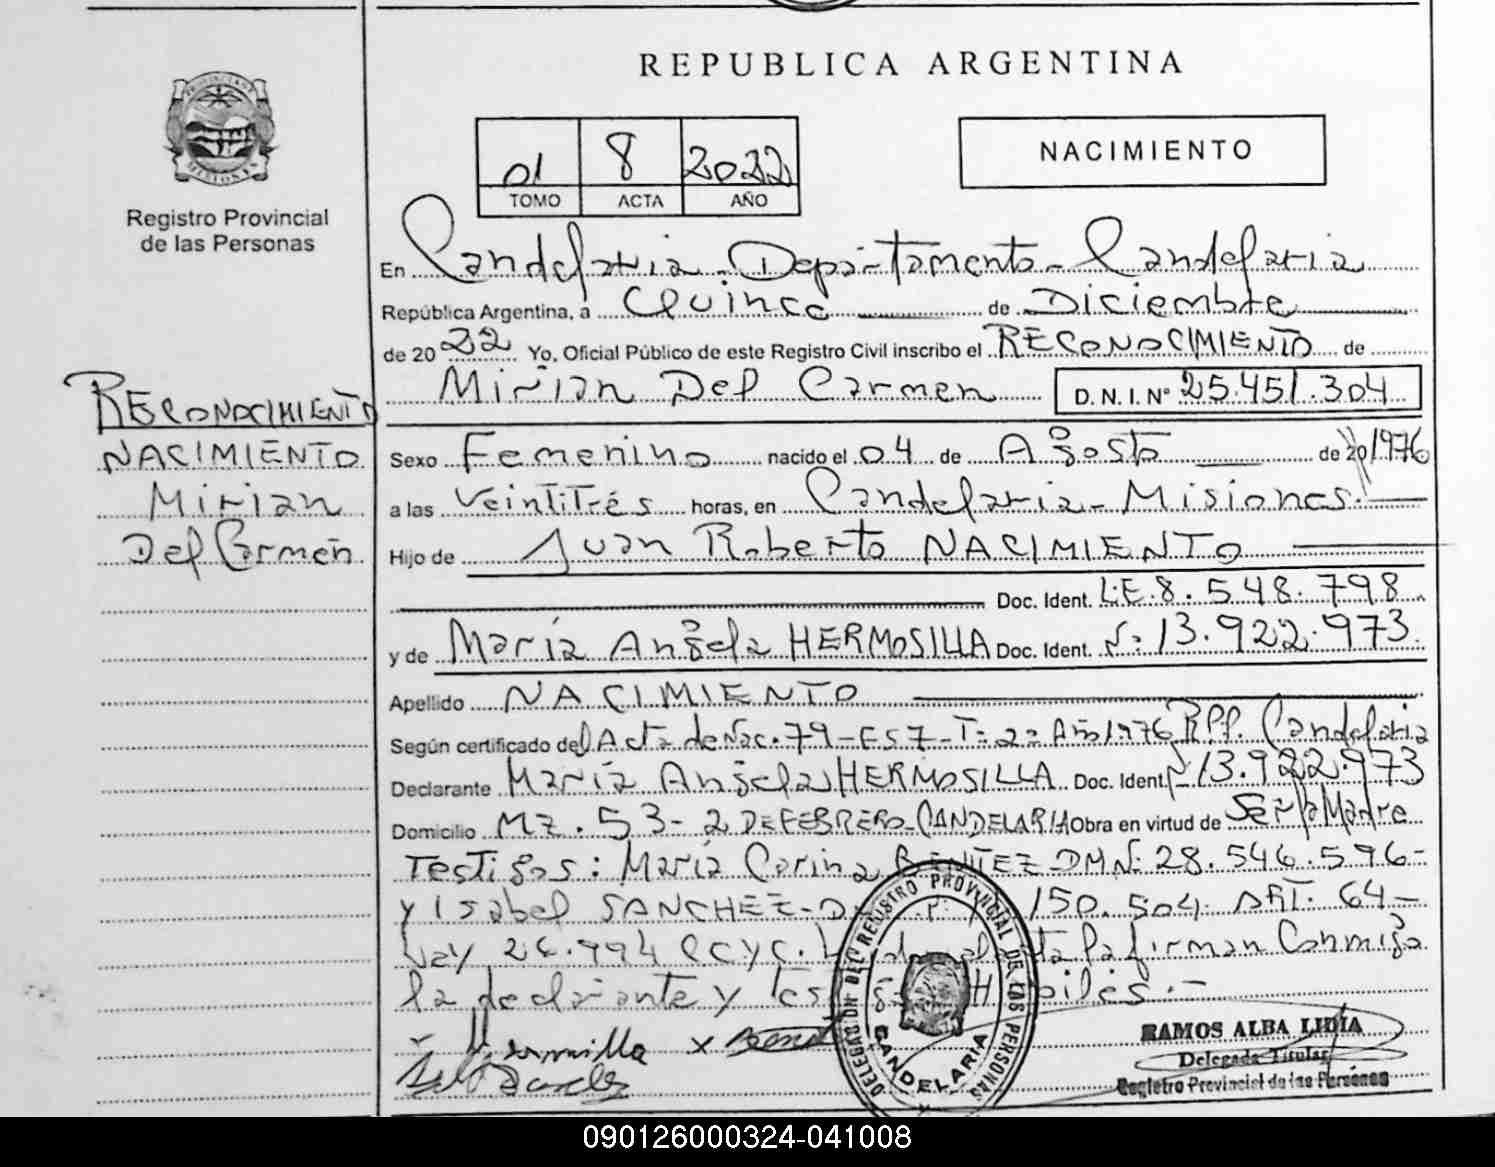 REPUBLICA ARGENTINA
01 8 2022
TOMO ACTA AÑO
NACIMIENTO
Registro Provincial
de las Personas
RECONOCIMIENTO
NACIMIENTO
Mirian
Del Carmen
En Candelaria - Departamento - Candelaria
República Argentina, a Quince de Diciembre
de 20 22 Yo, Oficial Público de este Registro Civil inscribo el RECONOCIMIENTO de
Mirian Del Carmen D.N.I. Nº 25.451.304
Sexo Femenino nacido el 04 de Agosto de 20 1976
a las Veintitrés horas, en Candelaria - Misiones.
Hijo de Juan Roberto NACIMIENTO
Doc. Ident. L.E. 8.548.798
y de María Angela HERMOSILLA Doc. Ident. Nº 13.922.973
Apellido NACIMIENTO
Según certificado del Acta de Nac. 79 - Fs 7 - Tº 2º Año 1976 R.P.P. Candelaria
Declarante María Angela HERMOSILLA Doc. Ident. Nº 13.922.973
Domicilio MZ. 53 - 2 DE FEBRERO - CANDELARIA Obra en virtud de Ser la Madre
Testigos: María Corina BENITEZ DNI Nº 28.546.596 -
y Isabel SANCHEZ - 150.504. ART. 64 -
Ley 26.994 CCYC. la firman Conmigo
la declarante y Hábiles. -
Hermosilla x
DELEGACION DEL REGISTRO PROVINCIAL DE LAS PERSONAS
CANDELARIA
RAMOS ALBA LIDIA
Delegada Titular
Registro Provincial de las Personas
090126000324-041008